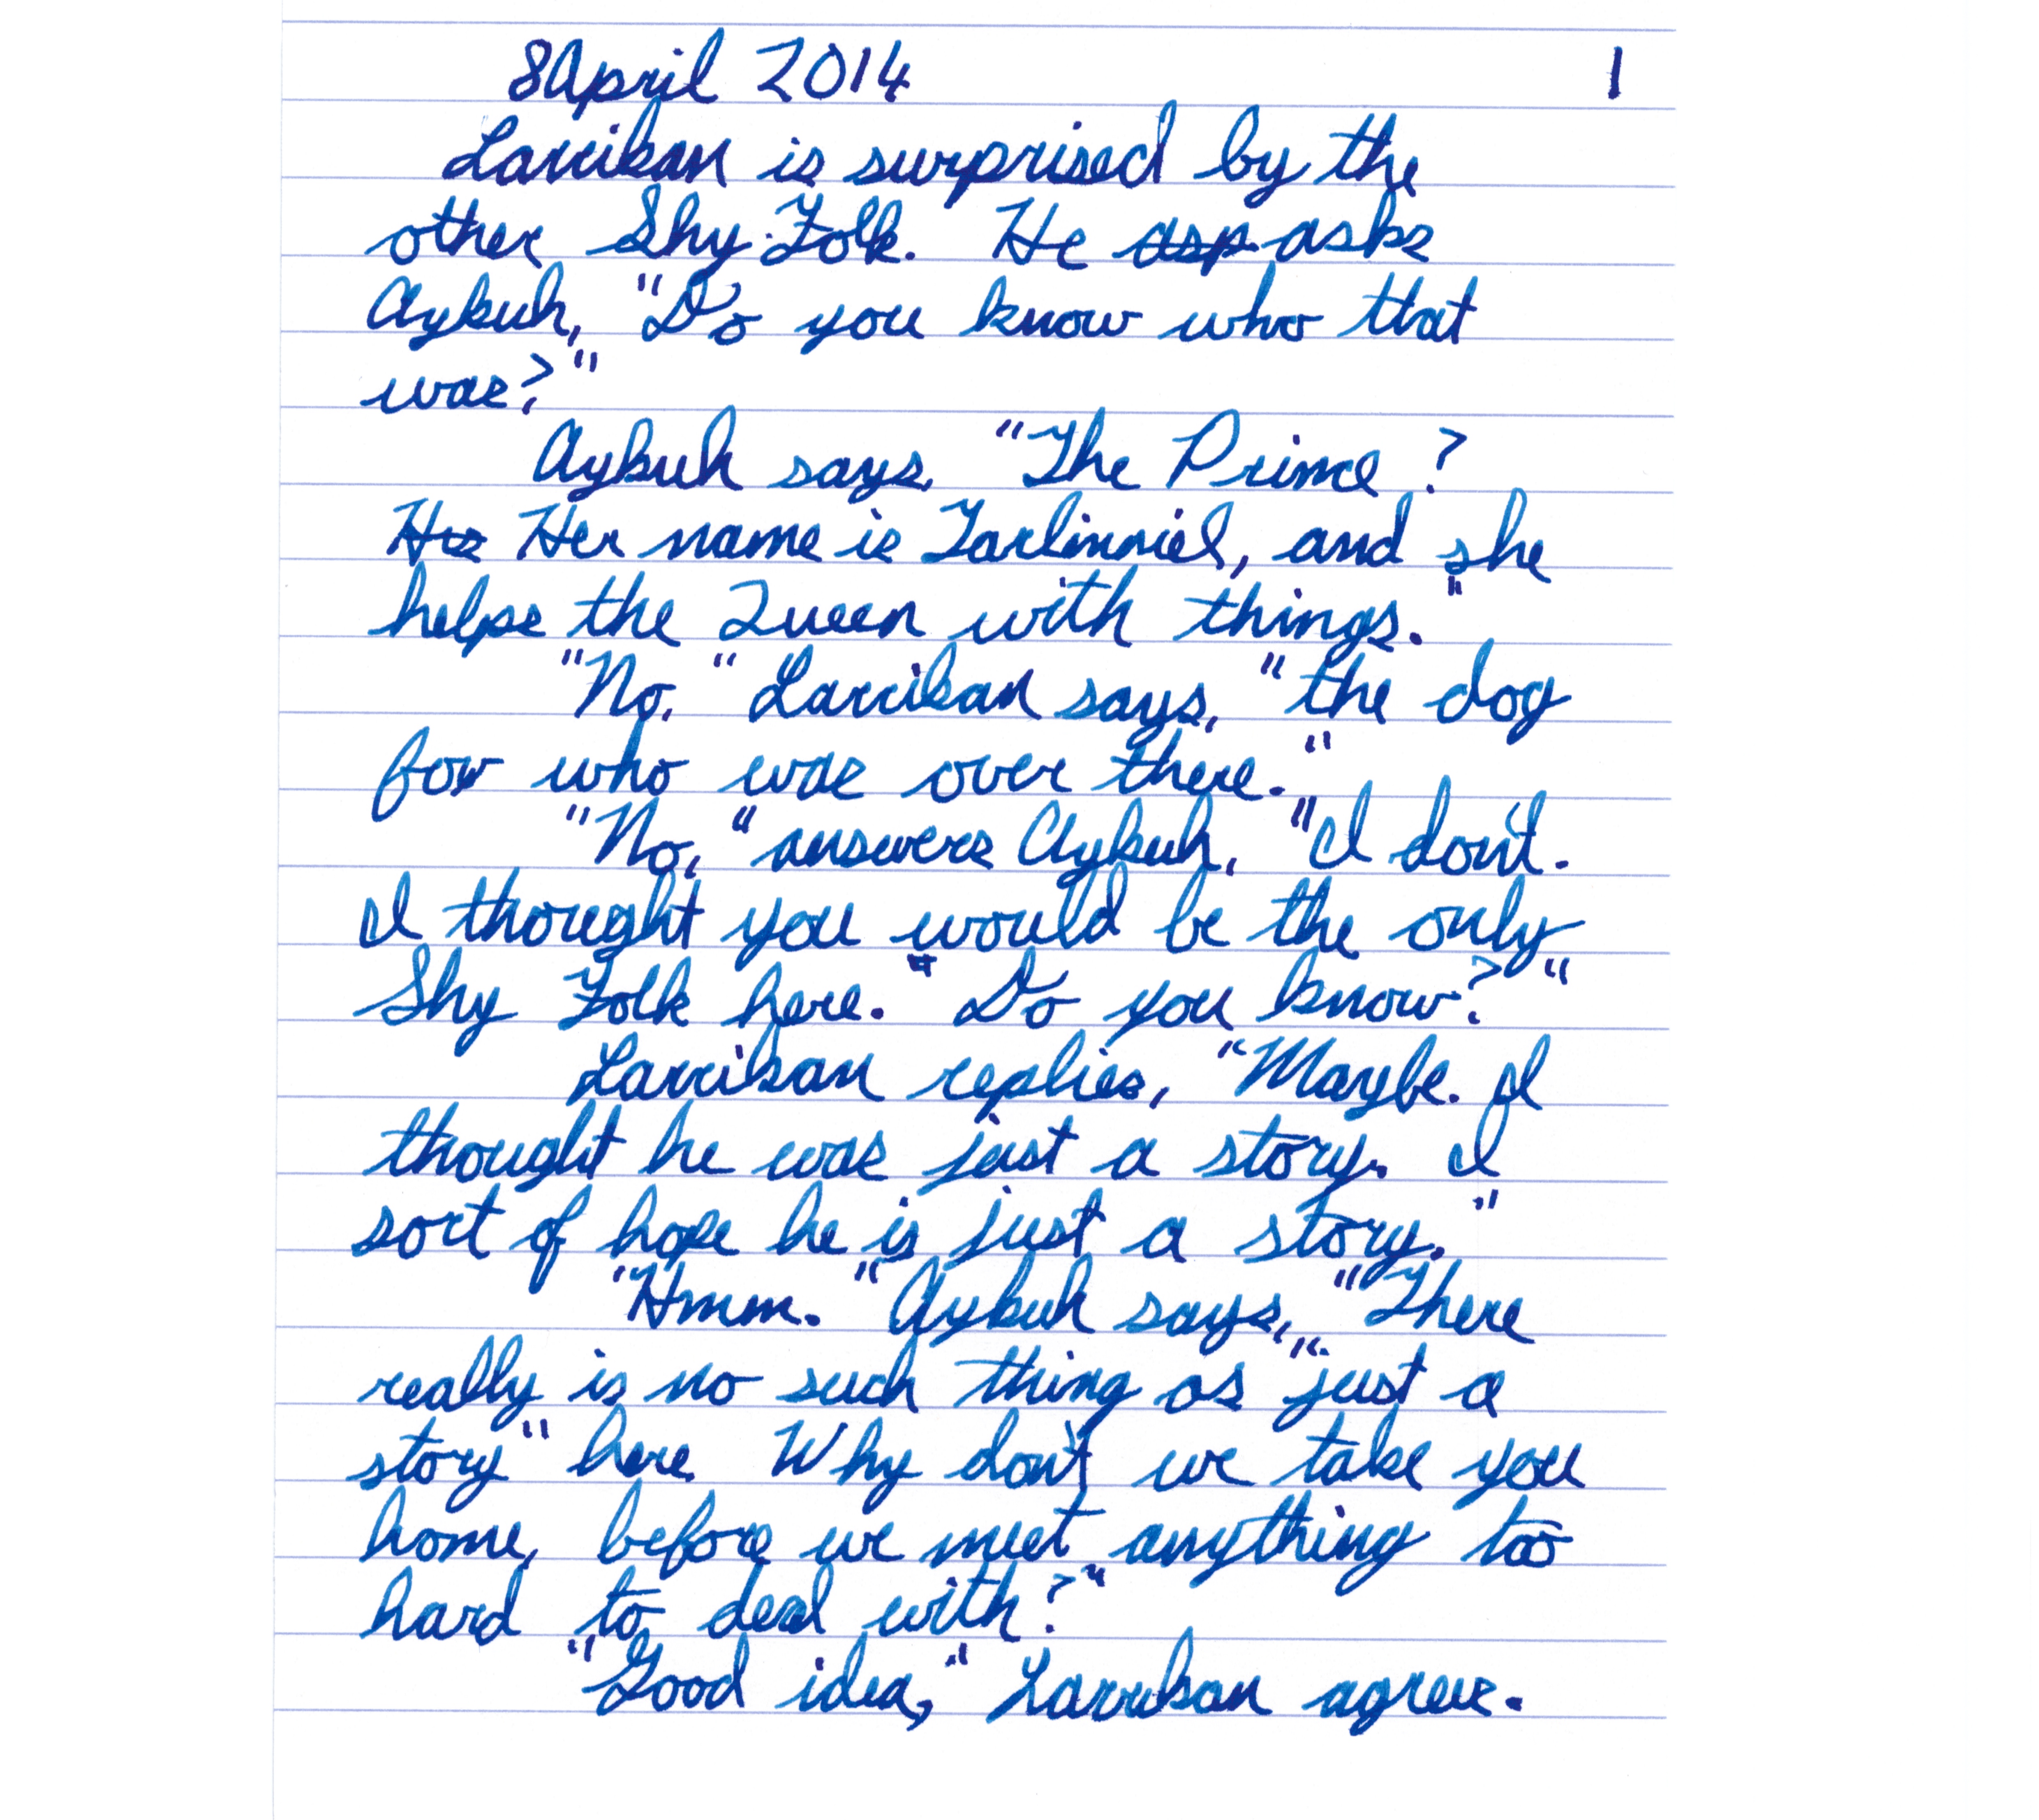 8 April 2014 1
Larriban is surprised by the
other Shy Folk. He asp asks
Aykuh, "Do you know who that
was?"
Aykuh says, "The Prime?
His Her name is Tarlinniel, and she
helps the Queen with things."
"No," Larriban says, "the dog
fox who was over there."
"No," answers Aykuh, "I don't.
I thought you would be the only
Shy Folk here. Do you know?"
Larriban replies, "Maybe. I
thought he was just a story. I
sort of hope he is just a story."
"Hmm." Aykuh says, "There
really is no such thing as "just a
story" here. Why don't we take you
home, before we meet anything too
hard to deal with?"
"Good idea," Larriban agrees.